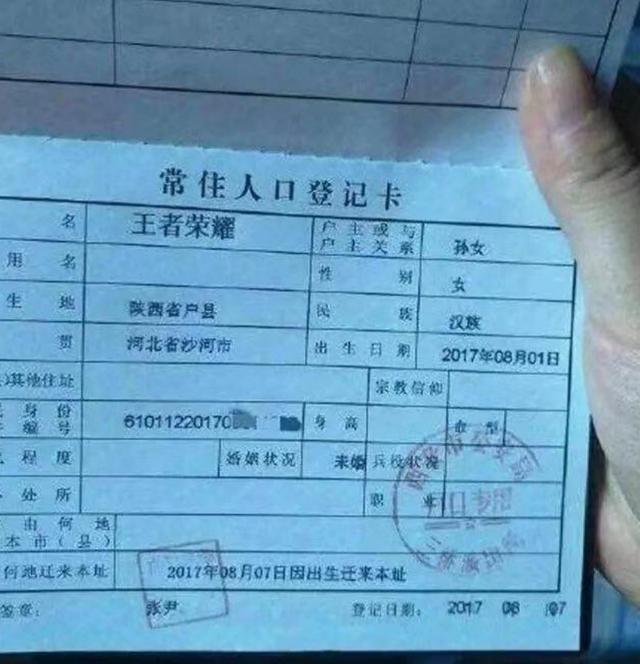 常住人口登记卡
名 王者荣耀 户主或与户主关系 孙女
用名 性别 女
生地 陕西省户县 民族 汉族
贯 河北省沙河市 出生日期 2017年08月01日
其他住址 宗教信仰
身份 编号 6101122017 身高 血型
程度 婚姻状况 未婚 兵役状况
处所 职业
由何地
本市(县)
何地迁来本址 2017年08月07日因出生迁来本址
签章: 张尹 登记日期: 2017 08 07